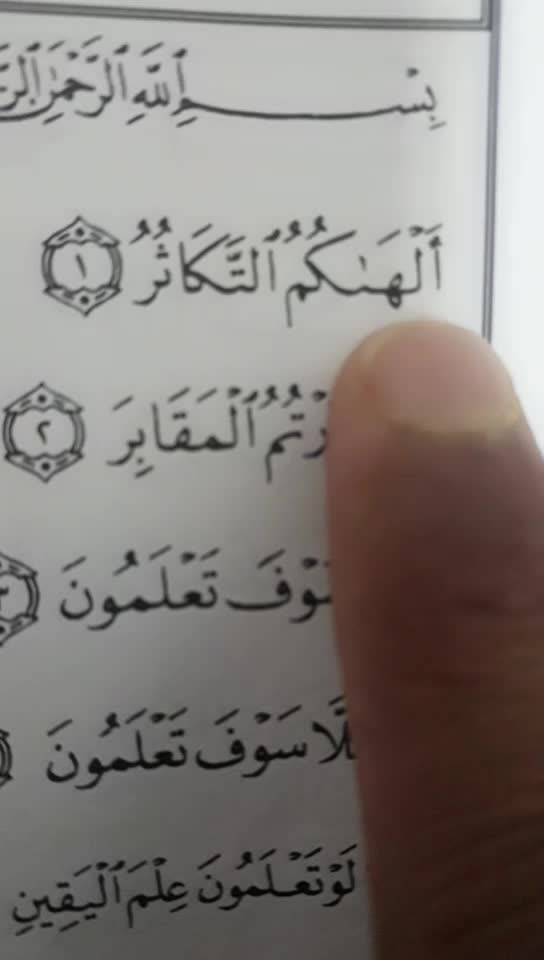 بِسْمِ ٱللَّهِ ٱلرَّحْمَٰنِ
أَلْهَىٰكُمُ ٱلتَّكَاثُرُ ١
ٱلْمَقَابِرَ ٢
تَعْلَمُونَ ٣
سَوْفَ تَعْلَمُونَ
لَوْ تَعْلَمُونَ عِلْمَ ٱلْيَقِينِ